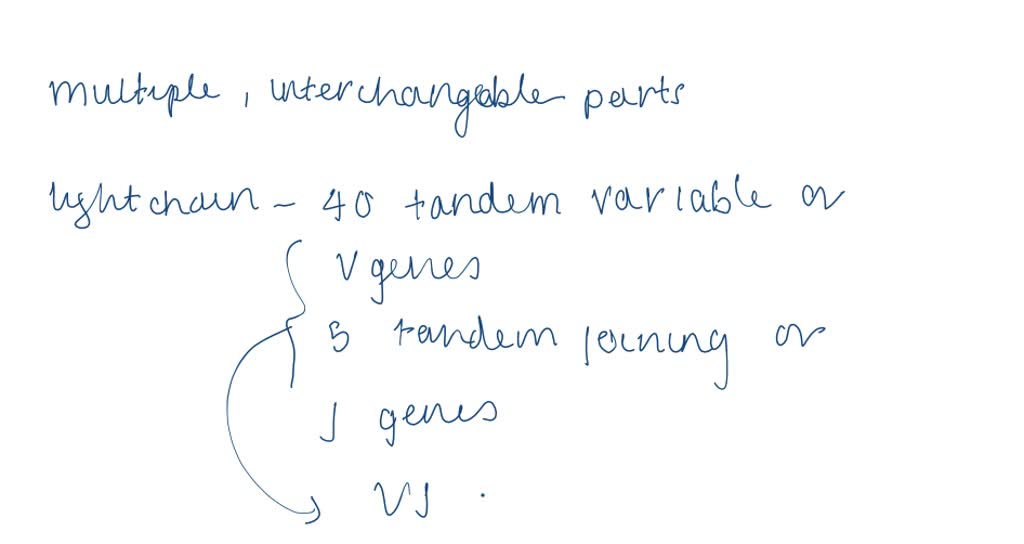 multiple, interchangeable parts
light chain - 40 tandem variable or
V genes
5 tandem joining or
J genes
VJ.